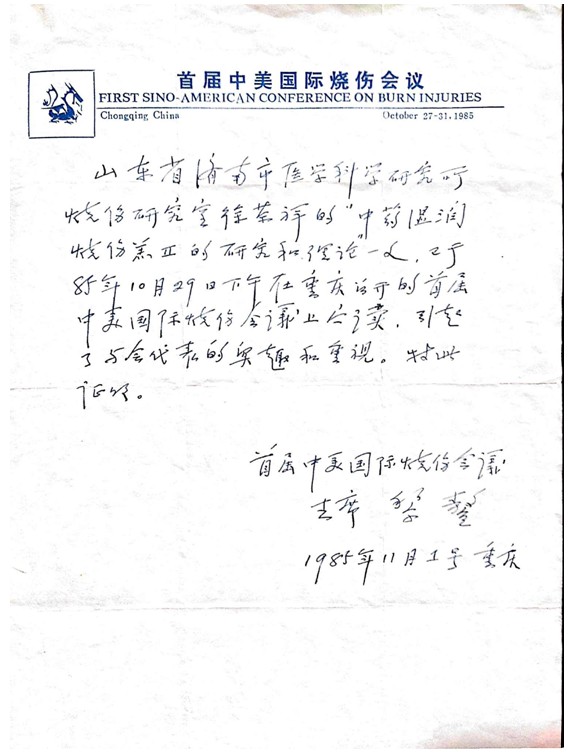 首届中美国际烧伤会议
FIRST SINO-AMERICAN CONFERENCE ON BURN INJURIES
Chongqing China October 27-31.1985
山东省济南市医学科学研究所
烧伤研究室徐荣祥的“中药湿润
烧伤 的研究和理论”一文，已于
85年10月29日下午在重庆召开的首届
中美国际烧伤会议上宣读，引起
了与会代表的兴趣和重视。特此
证明。
首届中美国际烧伤会议
主席 黎鳌
1985年11月1号 重庆